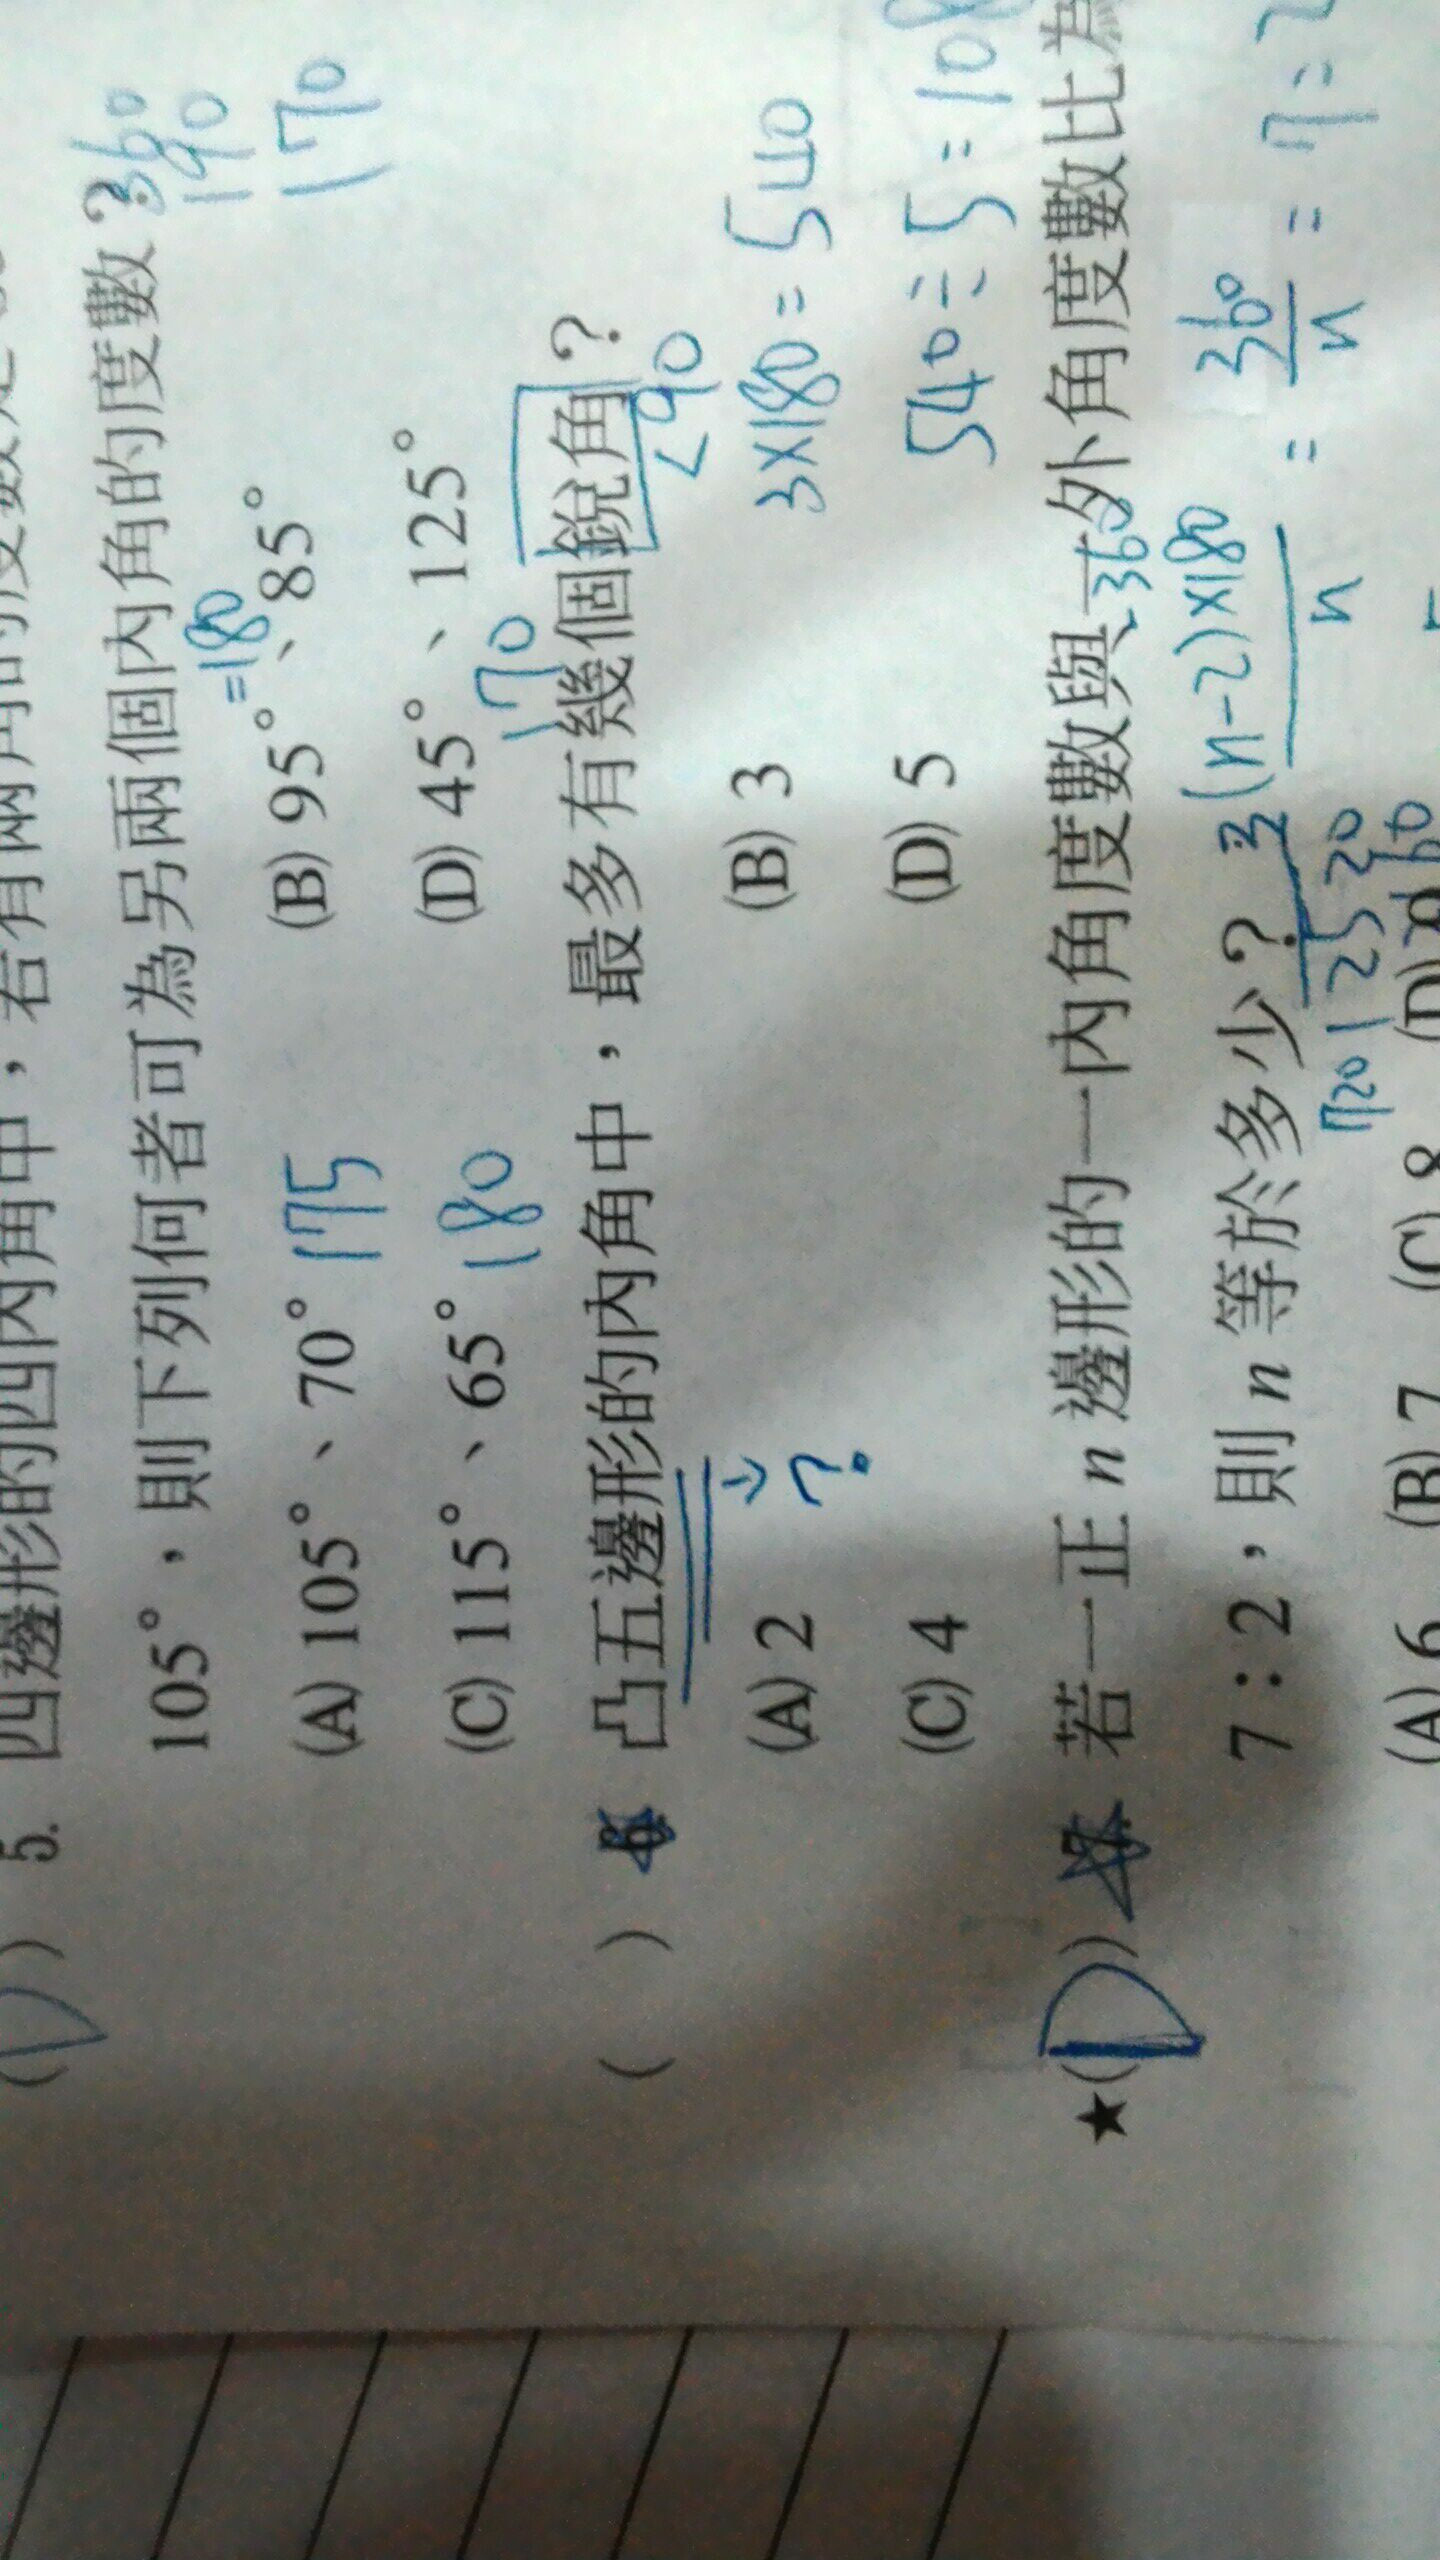 105°,則下列何者可為另兩個內角的度數? 360
190
170
=180
(A) 105°、70° 175 (B) 95°、85°
(C) 115°、65° 180 (D) 45°、125°
170
( ) 6. 凸五邊形的內角中,最多有幾個銳角?
<90
?
(A) 2 (B) 3 3×180=540
(C) 4 (D) 5 540÷5=108
★(D) 7. 若一正 n 邊形的一內角度數與一外角度數比為
7:2,則 n 等於多少?
(n-2)×180
n
=
360
n
= 7 =
720
(A) 6 (B) 7 (C) 8 (D) 9